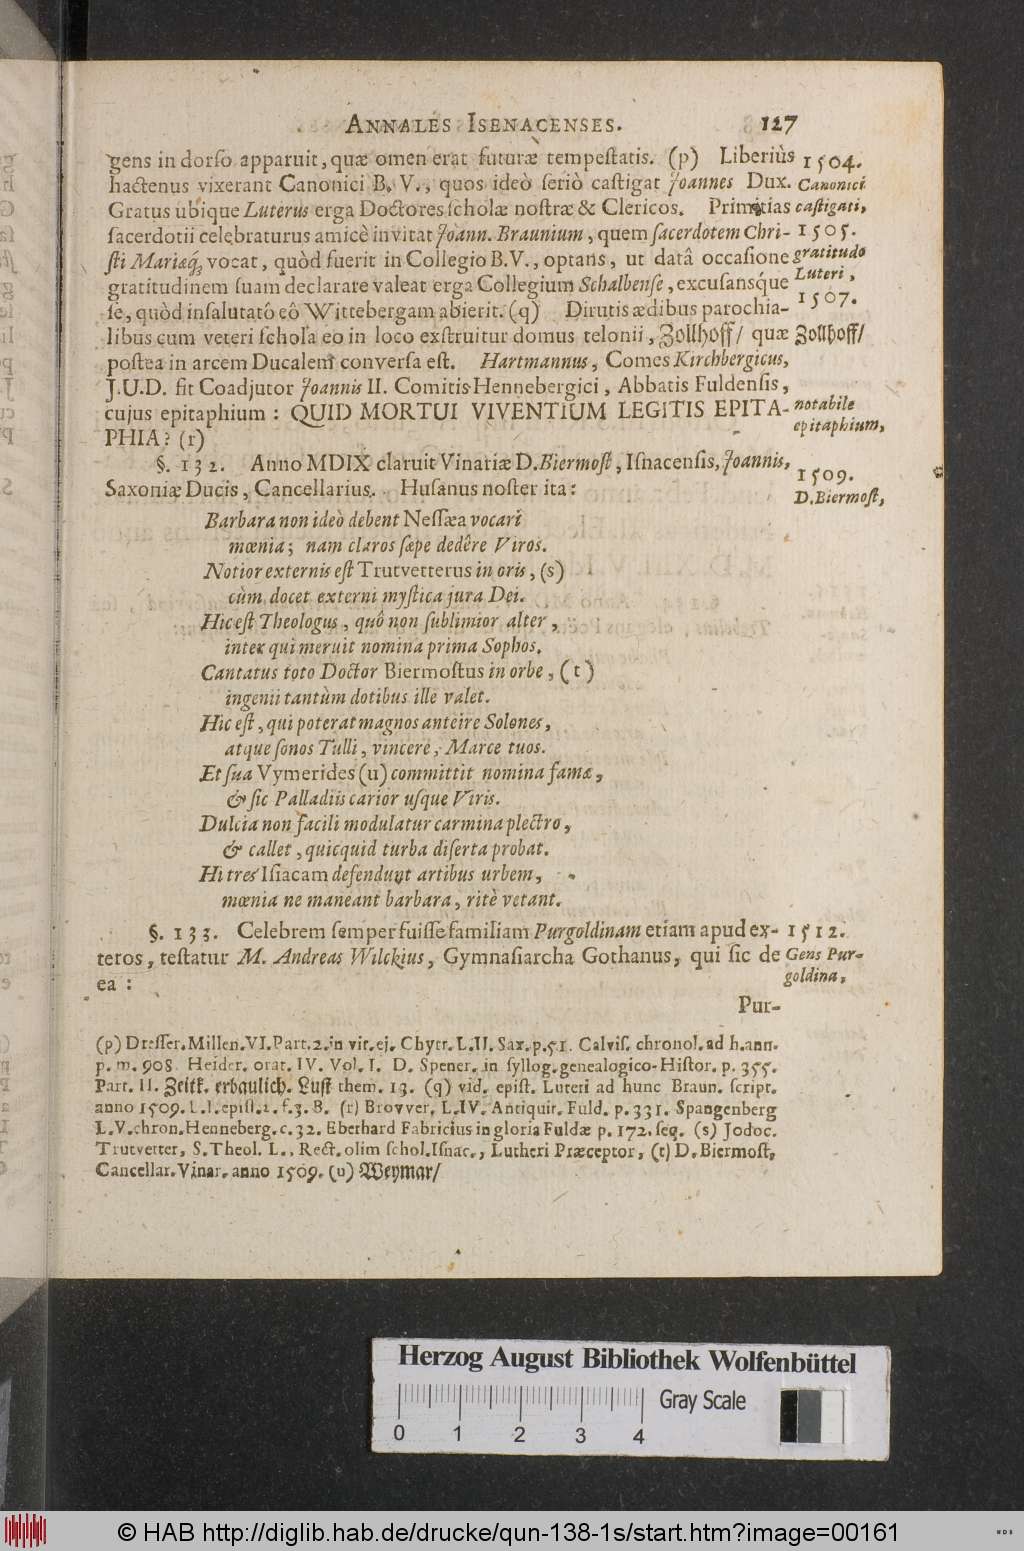 ANNALES ISENACENSES. 127
gens in dorso apparuit, quæ omen erat futuræ tempestatis. (p) Liberiùs 1504.
hactenus vixerant Canonici B. V., quos ideò seriò castigat Joannes Dux. Canonici
Gratus ubique Luterus erga Doctores scholæ nostræ & Clericos. Primitias castigati,
sacerdotii celebraturus amicè invitat Joann. Braunium, quem sacerdotem Chri- 1505.
sti Mariæq́; vocat, quòd fuerit in Collegio B.V., optans, ut datâ occasione gratitudo
gratitudinem suam declarare valeat erga Collegium Schalbense, excusansque Luteri,
se, quòd insalutatô eô Wittebergam abierit. (q) Dirutis ædibus parochia- 1507.
libus cum veteri schola eo in loco exstruitur domus telonii, Zollhoff/ quæ Zollhoff/
postea in arcem Ducalem conversa est. Hartmannus, Comes Kirchbergicus,
J.U.D. fit Coadjutor Joannis II. Comitis Hennebergici, Abbatis Fuldensis,
cujus epitaphium: QUID MORTUI VIVENTIUM LEGITIS EPITA- notabile
PHIA? (r) epitaphium,
§. 132. Anno MDIX claruit Vinariæ D. Biermost, Isnacensis, Joannis, 1509.
Saxoniæ Ducis, Cancellarius. Husanus noster ita: D. Biermost,
Barbara non ideò debent Nessæa vocari
mœnia; nam claros sæpe dedêre Viros.
Notior externis est Trutvetterus in oris, (s)
cùm docet externi mystica jura Dei.
Hic est Theologus, quô non sublimior alter,
inter qui meruit nomina prima Sophos.
Cantatus toto Doctor Biermostus in orbe, (t)
ingenii tantùm dotibus ille valet.
Hic est, qui poterat magnos anteire Solones,
atque sonos Tulli, vincere, Marce tuos.
Et sua Vymerides (u) committit nomina famæ,
& sic Palladiis carior usque Viris.
Dulcia non facili modulatur carmina plectro,
& callet, quicquid turba diserta probat.
Hi tres Isiacam defendunt artibus urbem,
mœnia ne maneant barbara, ritè vetant.
§. 133. Celebrem semper fuisse familiam Purgoldinam etiam apud ex- 1512.
teros, testatur M. Andreas Wilckius, Gymnasiarcha Gothanus, qui sic de Gens Pur-
ea: goldina,
Pur-
(p) Dresser. Millen. VI. Part. 2. in vit. ej. Chytr. L. II. Sax. p. 51. Calvis. chronol. ad h. ann.
p. m. 908. Heider. orat. IV. Vol. I. D. Spener. in syllog. genealogico-Histor. p. 355.
Part. II. Zeitk. erbaulich. Lust them. 13. (q) vid. epist. Luteri ad hunc Braun. script.
anno 1509. L. I. epist. 2. f. 3. 8. (r) Brovver. L. IV. Antiquit. Fuld. p. 331. Spangenberg
L. V. chron. Henneberg. c. 32. Eberhard Fabricius in gloria Fuldæ p. 172. seq. (s) Jodoc.
Trutvetter, S. Theol. L., Rect. olim schol. Isnac., Lutheri Præceptor, (t) D. Biermost,
Cancellar. Vinar. anno 1509. (u) Weymar/
Herzog August Bibliothek Wolfenbüttel
Gray Scale
0 1 2 3 4
© HAB http://diglib.hab.de/drucke/qun-138-1s/start.htm?image=00161